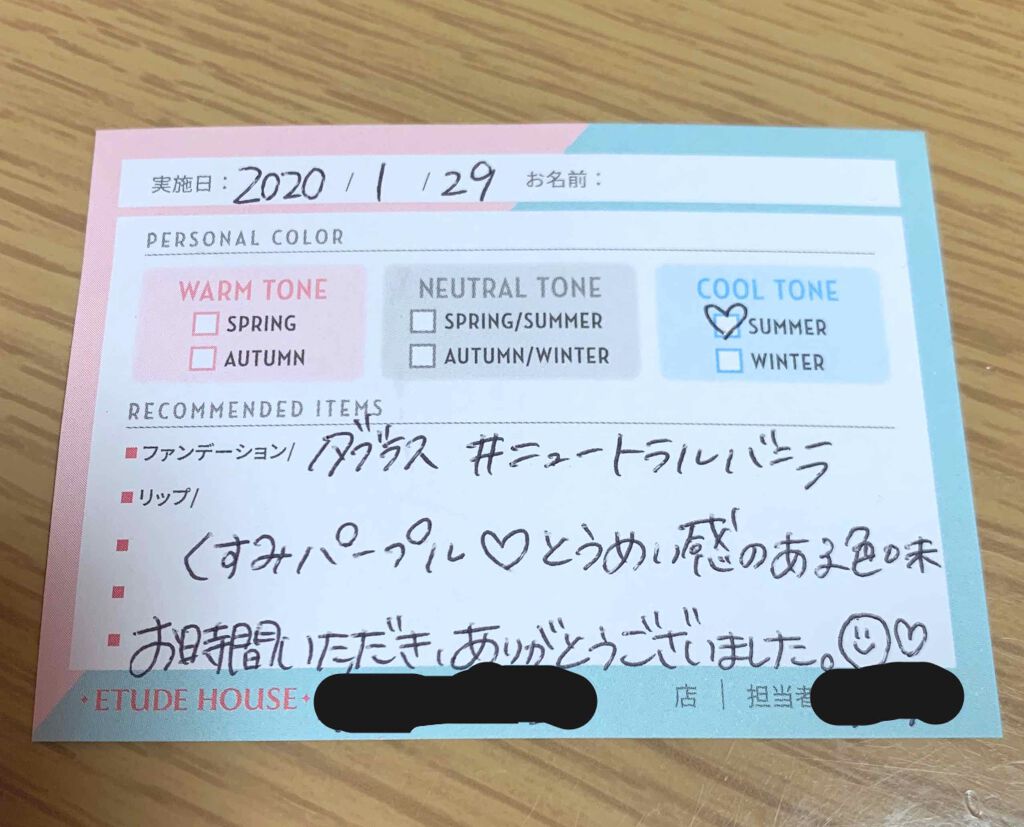 実施日：2020 / 1 / 29 お名前：
PERSONAL COLOR
WARM TONE
SPRING
AUTUMN
NEUTRAL TONE
SPRING/SUMMER
AUTUMN/WINTER
COOL TONE
SUMMER
WINTER
RECOMMENDED ITEMS
ファンデーション/ ダブラス #ニュートラルバニラ
リップ/
くすみパープル♡とうめい感のある色味
お時間いただき、ありがとうございました。☺♡
ETUDE HOUSE 店 | 担当者